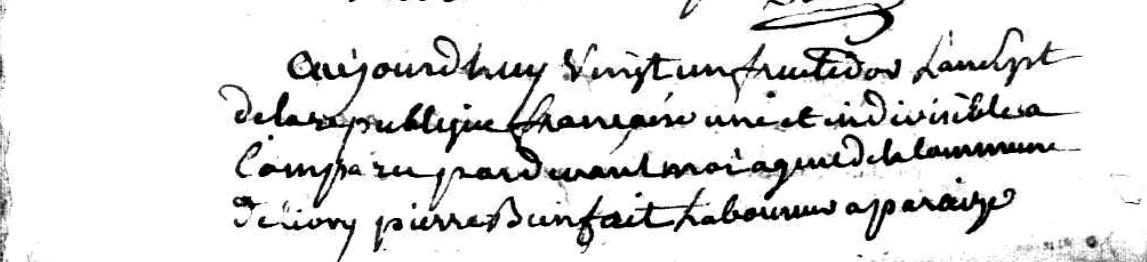 aujourdhuy vingt un fructidor lan sept
de la republique francaise une et indivisible a
comparu pardevant moi agent de la commune
de livry pierre Bienfait Laboureur a paraize